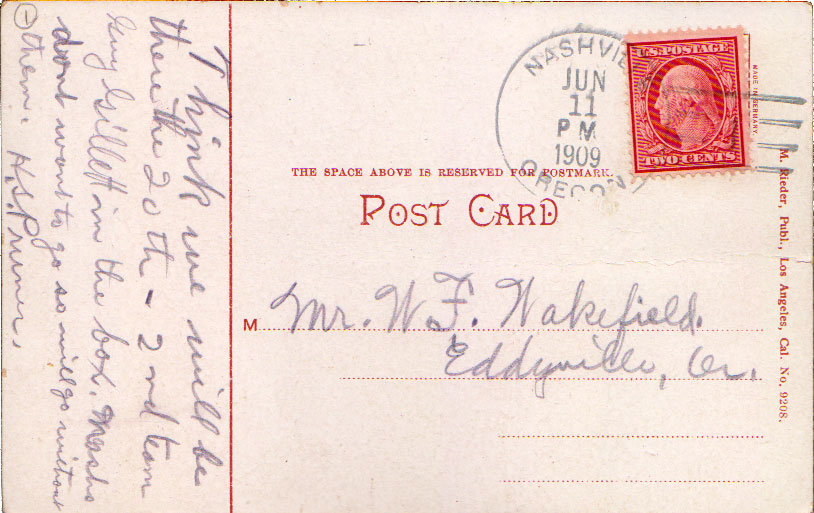 Think we will be
there the 20th - 2nd team
Guy Gillett in the box. Mashs
dont want to go so will go without
them. H.S. Pruner.
NASHVILLE
JUN
11
P M
1909
OREGON
U.S. POSTAGE
TWO CENTS
MADE IN GERMANY
THE SPACE ABOVE IS RESERVED FOR POSTMARK.
POST CARD
M Mr. W. F. Wakefield.
Eddyville, Or.
M. Rieder, Publ., Los Angeles, Cal. No. 9208.